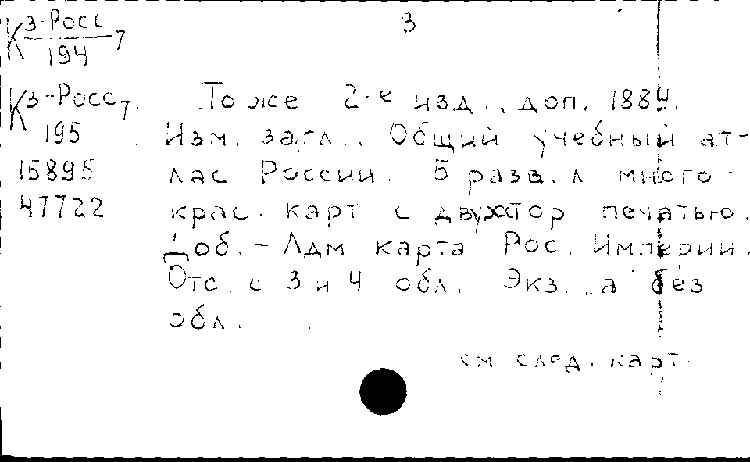 К з-Росс/194 7
3
К з-Росс/195 7.
15895
47722
То же 2-е изд., доп. 1884.
Изм. загл.: Общий учебный ат-
лас России. 5 разв. л много-
крас. карт с двухстор печатью.
Доб. - Адм карта Рос. Империи.
Отс. с 3 и 4 обл. Экз. а без
обл.
см след. карт.